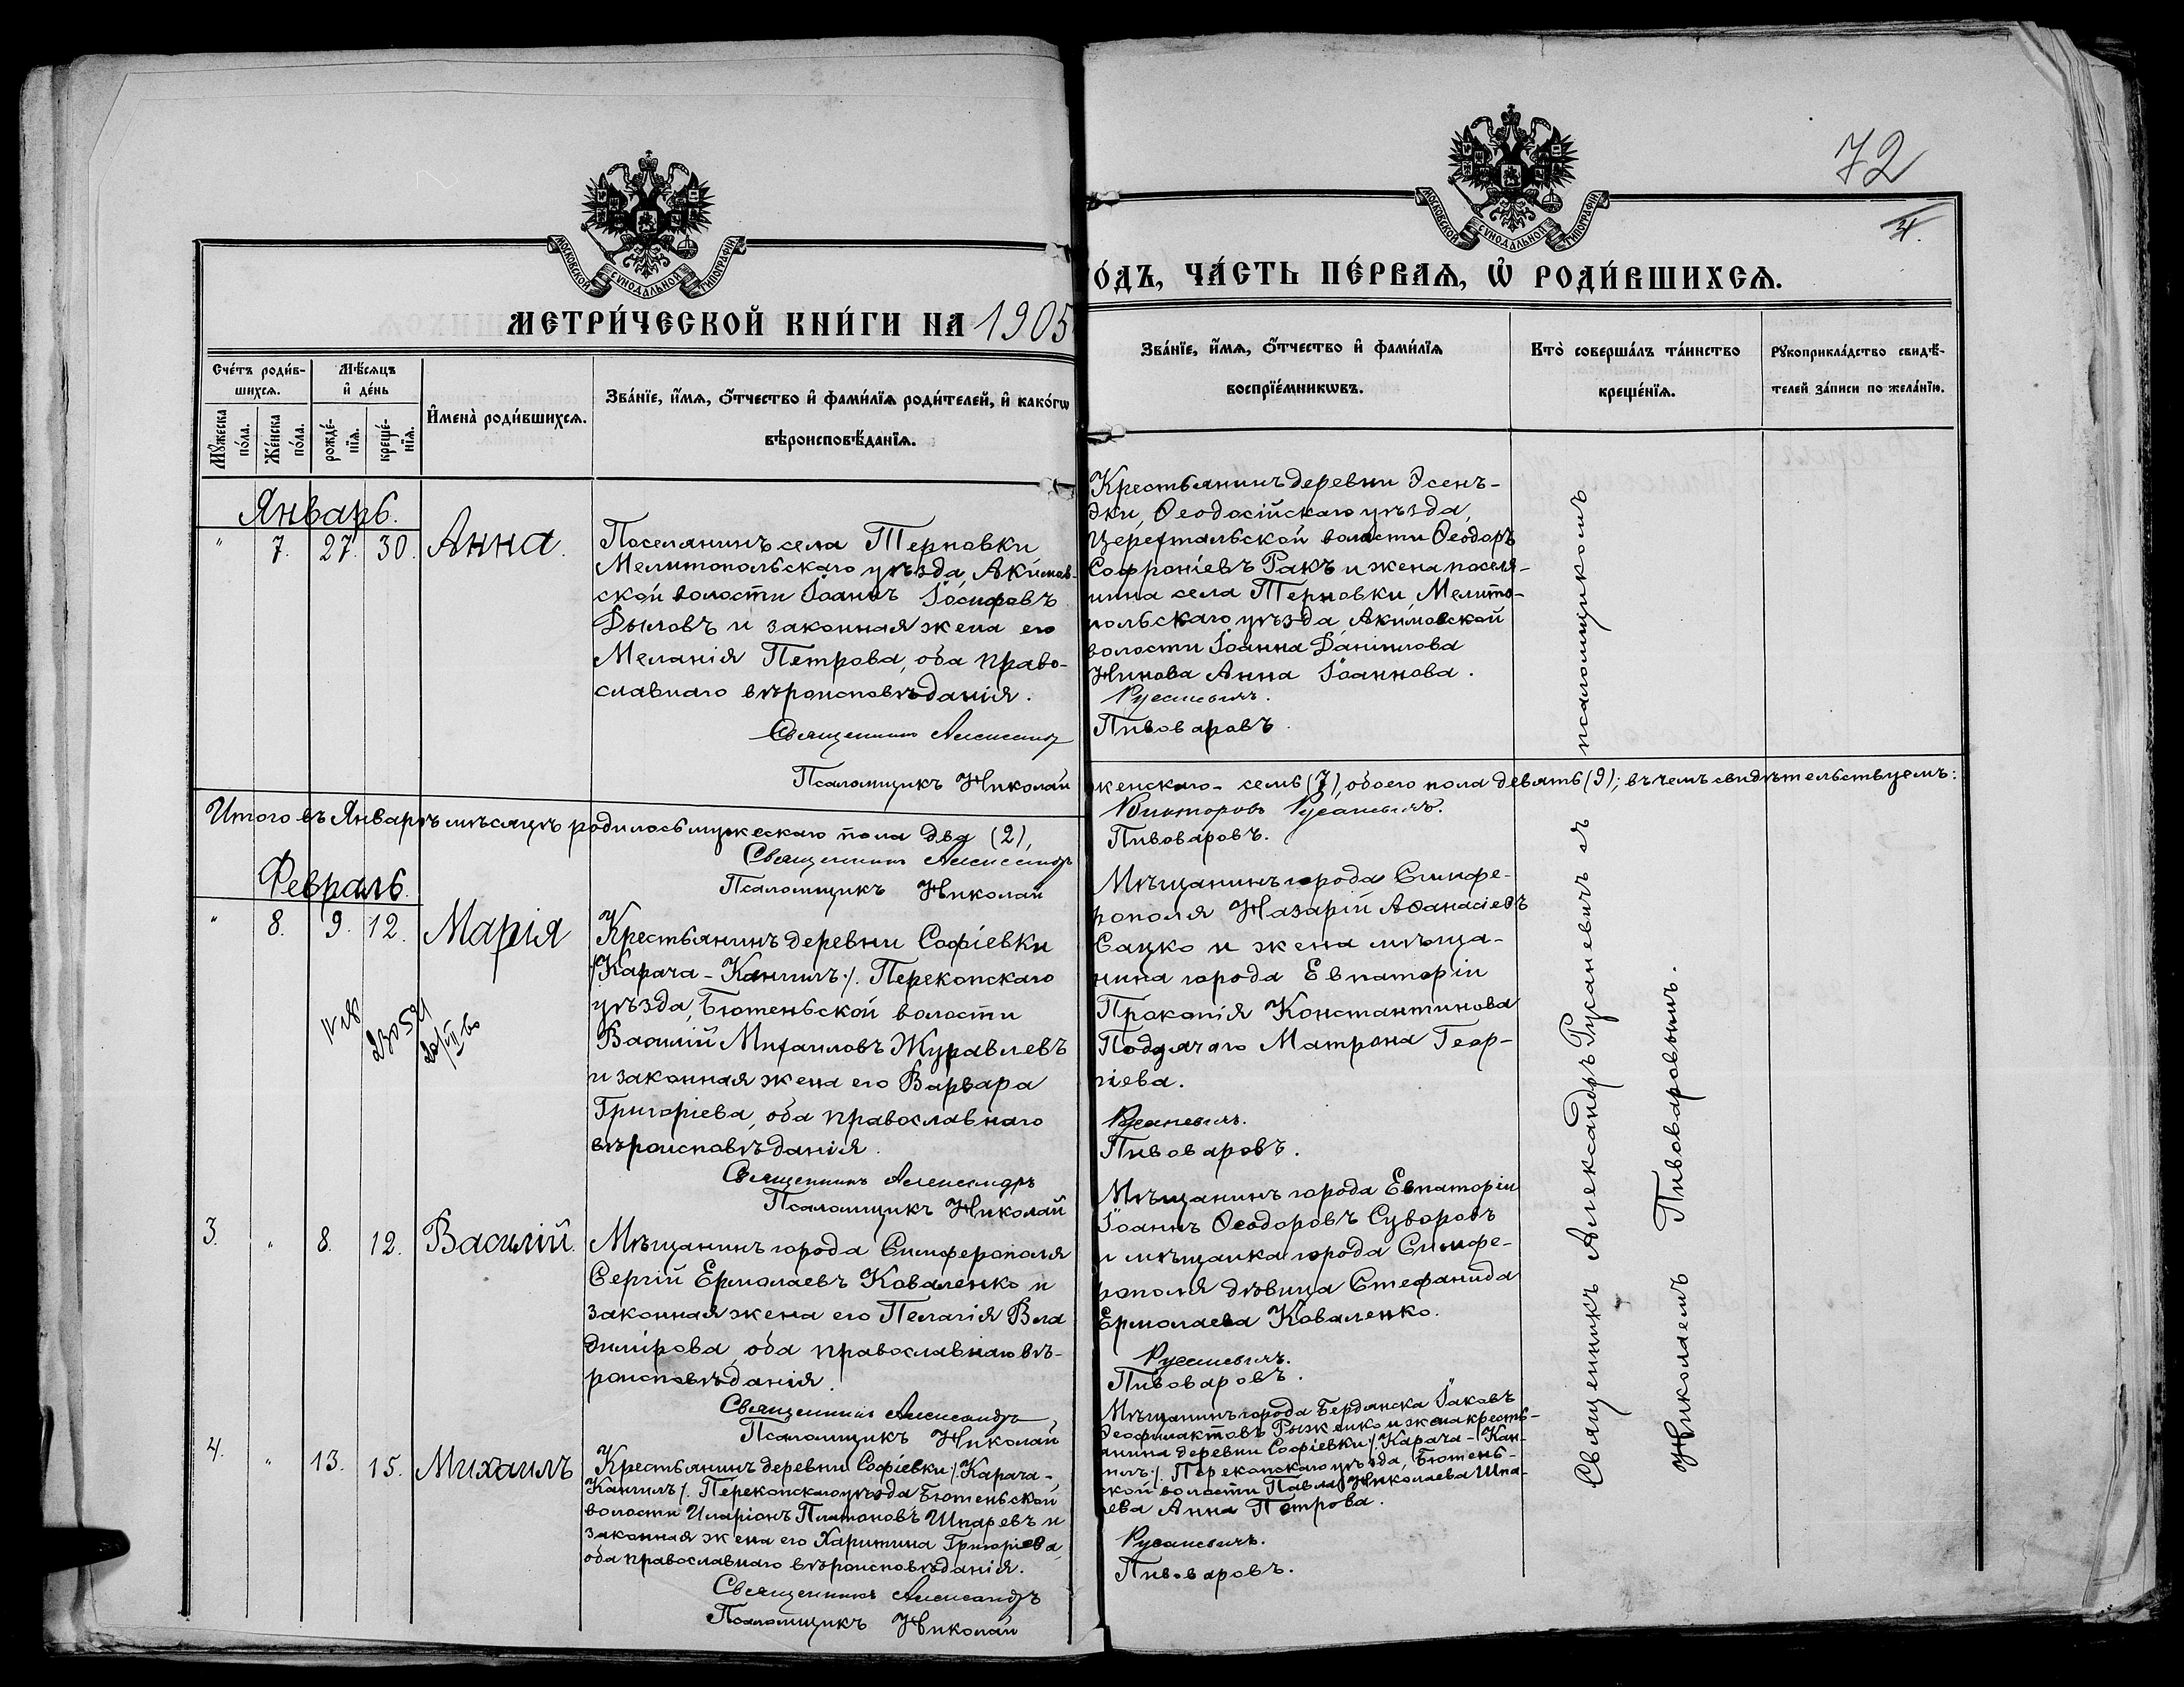 72
4.
МОСКОВСКОЙ СѴНОДАЛЬНОЙ ТИПОГРАФІИ
МОСКОВСКОЙ СѴНОДАЛЬНОЙ ТИПОГРАФІИ
МЕТРИ́ЧЕСКОЙ КНИ́ГИ НА 1905
О́ДЪ, ЧА́СТЬ ПЕ́РВАѦ, Ѡ҆ РОДИ́ВШИХСѦ.
Сче́тъ роди́в-
шихсѧ.
Мꙋ́жеска
по́ла.
Же́нска
по́ла.
Мѣ́сѧцъ
и҆ де́нь
рожде́-
нїѧ.
креще́-
нїѧ.
И҆мена̀ роди́вшихсѧ.
Зва́нїе, и҆́мѧ, ѻ҆́тчество и҆ фами́лїѧ роди́телей, и҆ како́гѡ
вѣроисповѣ́данїѧ.
Зва́нїе, и҆́мѧ, ѻ҆́тчество и҆ фами́лїѧ
воспрїе́мникѡвъ.
Кто̀ соверша́лъ та́инство
креще́нїѧ.
Рꙋкоприкла́дство свидѣ́-
телей за́писи по жела́нїю.
Январь.
" 7. 27. 30. Анна.
Поселянинъ села Терновки
Мелитопольскаго уѣзда, Акимов-
ской волости Іоаннъ Іосифовъ
Дыловъ и законная жена его
Меланія Петрова, оба право-
славнаго вѣроисповѣданія.
Священникъ Александръ
Псаломщикъ Николай
Крестьянинъ деревни Эсенъ-
эки, Ѳеодосійскаго уѣзда,
волости Ѳеодоръ
Софроніевъ Ракъ и жена поселя-
нина села Терновки, Мелито-
польскаго уѣзда Акимовской
волости Іоанна Даніилова
Нинова Анна Іоаннова.
Русаневичъ.
Пивоваровъ.
Итого въ Январѣ мѣсяцѣ родилось мужескаго пола два (2),
женскаго - семь (7), обоего пола девять (9); въ чемъ свидѣтельствуемъ:
Священникъ Александръ
Викторовъ Русаневичъ.
Псаломщикъ Николай
Пивоваровъ.
Февраль.
" 8. 9. 12. Марія
230521
Крестьянинъ деревни Софіевки
/:Карача-Кангилъ:/. Перекопскаго
уѣзда, Бютеньской волости
Василій Михаиловъ Журавлевъ
и законная жена его Варвара
Григоріева, оба православнаго
вѣроисповѣданія.
Священникъ Александръ
Псаломщикъ Николай
Мѣщанинъ города Симфе-
рополя Назарій Аѳанасіевъ
Сацко и жена мѣща-
нина города Евпаторіи
Прокопія Константинова
Подлячаго Матрона Геор-
гіева.
Русаневичъ.
Пивоваровъ.
3. " 8. 12. Василій.
Мѣщанинъ города Симферополя
Сергій Ермолаевъ Коваленко и
законная жена его Пелагія Вла
димірова, оба православнаго вѣ-
роисповѣданія.
Священникъ Александръ
Псаломщикъ Николай
Мѣщанинъ города Евпаторіи
Іоаннъ Ѳеодоровъ Суворовъ
и мѣщанка города Симфе-
рополя дѣвица Стефанида
Ермолаева Коваленко.
Русаневичъ.
Пивоваровъ.
4. " 13. 15. Михаилъ
Крестьянинъ деревни Софіевки /:Карача-
Кангилъ:/. Перекопскаго уѣзда Бютеньской
волости Иларіонъ Платоновъ Шпаревъ и
законная жена его Харитина Григоріева,
оба православнаго вѣроисповѣданія.
Священникъ Александръ
Псаломщикъ Николай
Мѣщанинъ города Бердянска Іаковъ
Ѳеофилактовъ Рыженко и жена кресть-
янина деревни Софіевки /:Карача-Кан-
гилъ:/. Перекопскаго уѣзда, Бютень-
ской волости Павла Николаева Шпа-
рева Анна Петрова.
Русаневичъ.
Пивоваровъ.
Священникъ Александръ Русаневичъ съ псаломщикомъ
Николаемъ Пивоваровымъ.